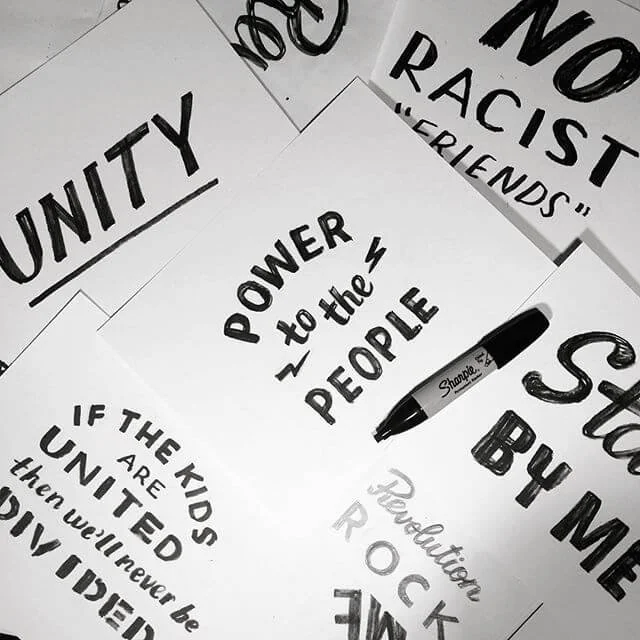 NO
RACIST
"FRIENDS"
UNITY
POWER
to the
PEOPLE
Sharpie
IF THE KIDS
ARE
UNITED
then we'll never be
DIVIDED
Sta
BY ME
Revolution
ROCK